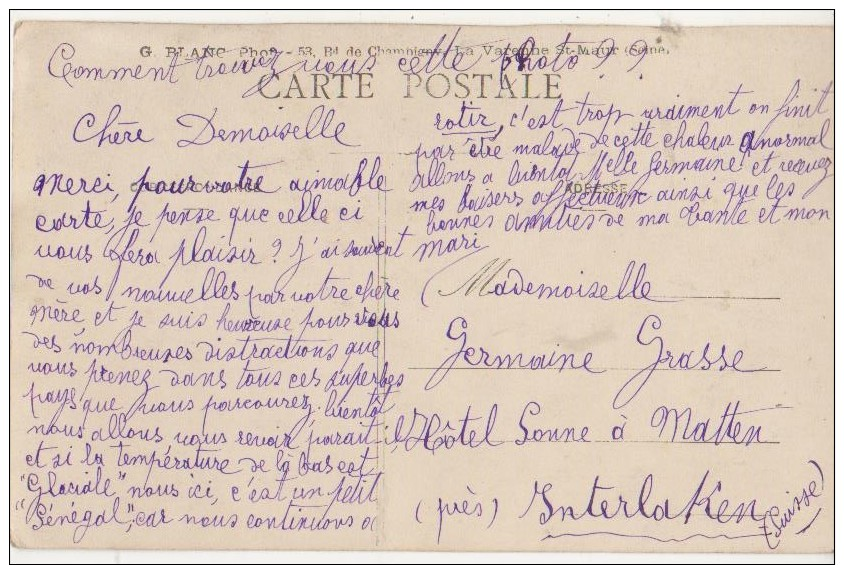 G. BLANC Phot - 53, Bd de Champigny, La Varenne St-Maur (Seine)
Comment trouvez vous cette photo ? ?
CARTE POSTALE
Chère Demoiselle
Merci, pour votre aimable
carte, je pense que celle ci
vous fera plaisir ? J'ai souvent
de vos nouvelles par votre chère
Mère et je suis heureuse pour vous
des nombreuses distractions que
vous prenez dans tous ces superbes
pays que vous parcourez. bientôt
nous allons vous revoir paraît il,
et si la température de là bas est
"Glaciale" nous ici, c'est un petit
"Sénégal", car nous continuons a
rotir, c'est trop vraiment on finit
par être malade de cette chaleur anormal
allons a bientôt Melle Germaine et recevez
mes baisers affectueux ainsi que les
bonnes amitiés de ma tante et mon
mari
ADRESSE
Mademoiselle
Germaine Grasse
Hôtel Sonne à Matten
(près) Interlaken
(Suisse)